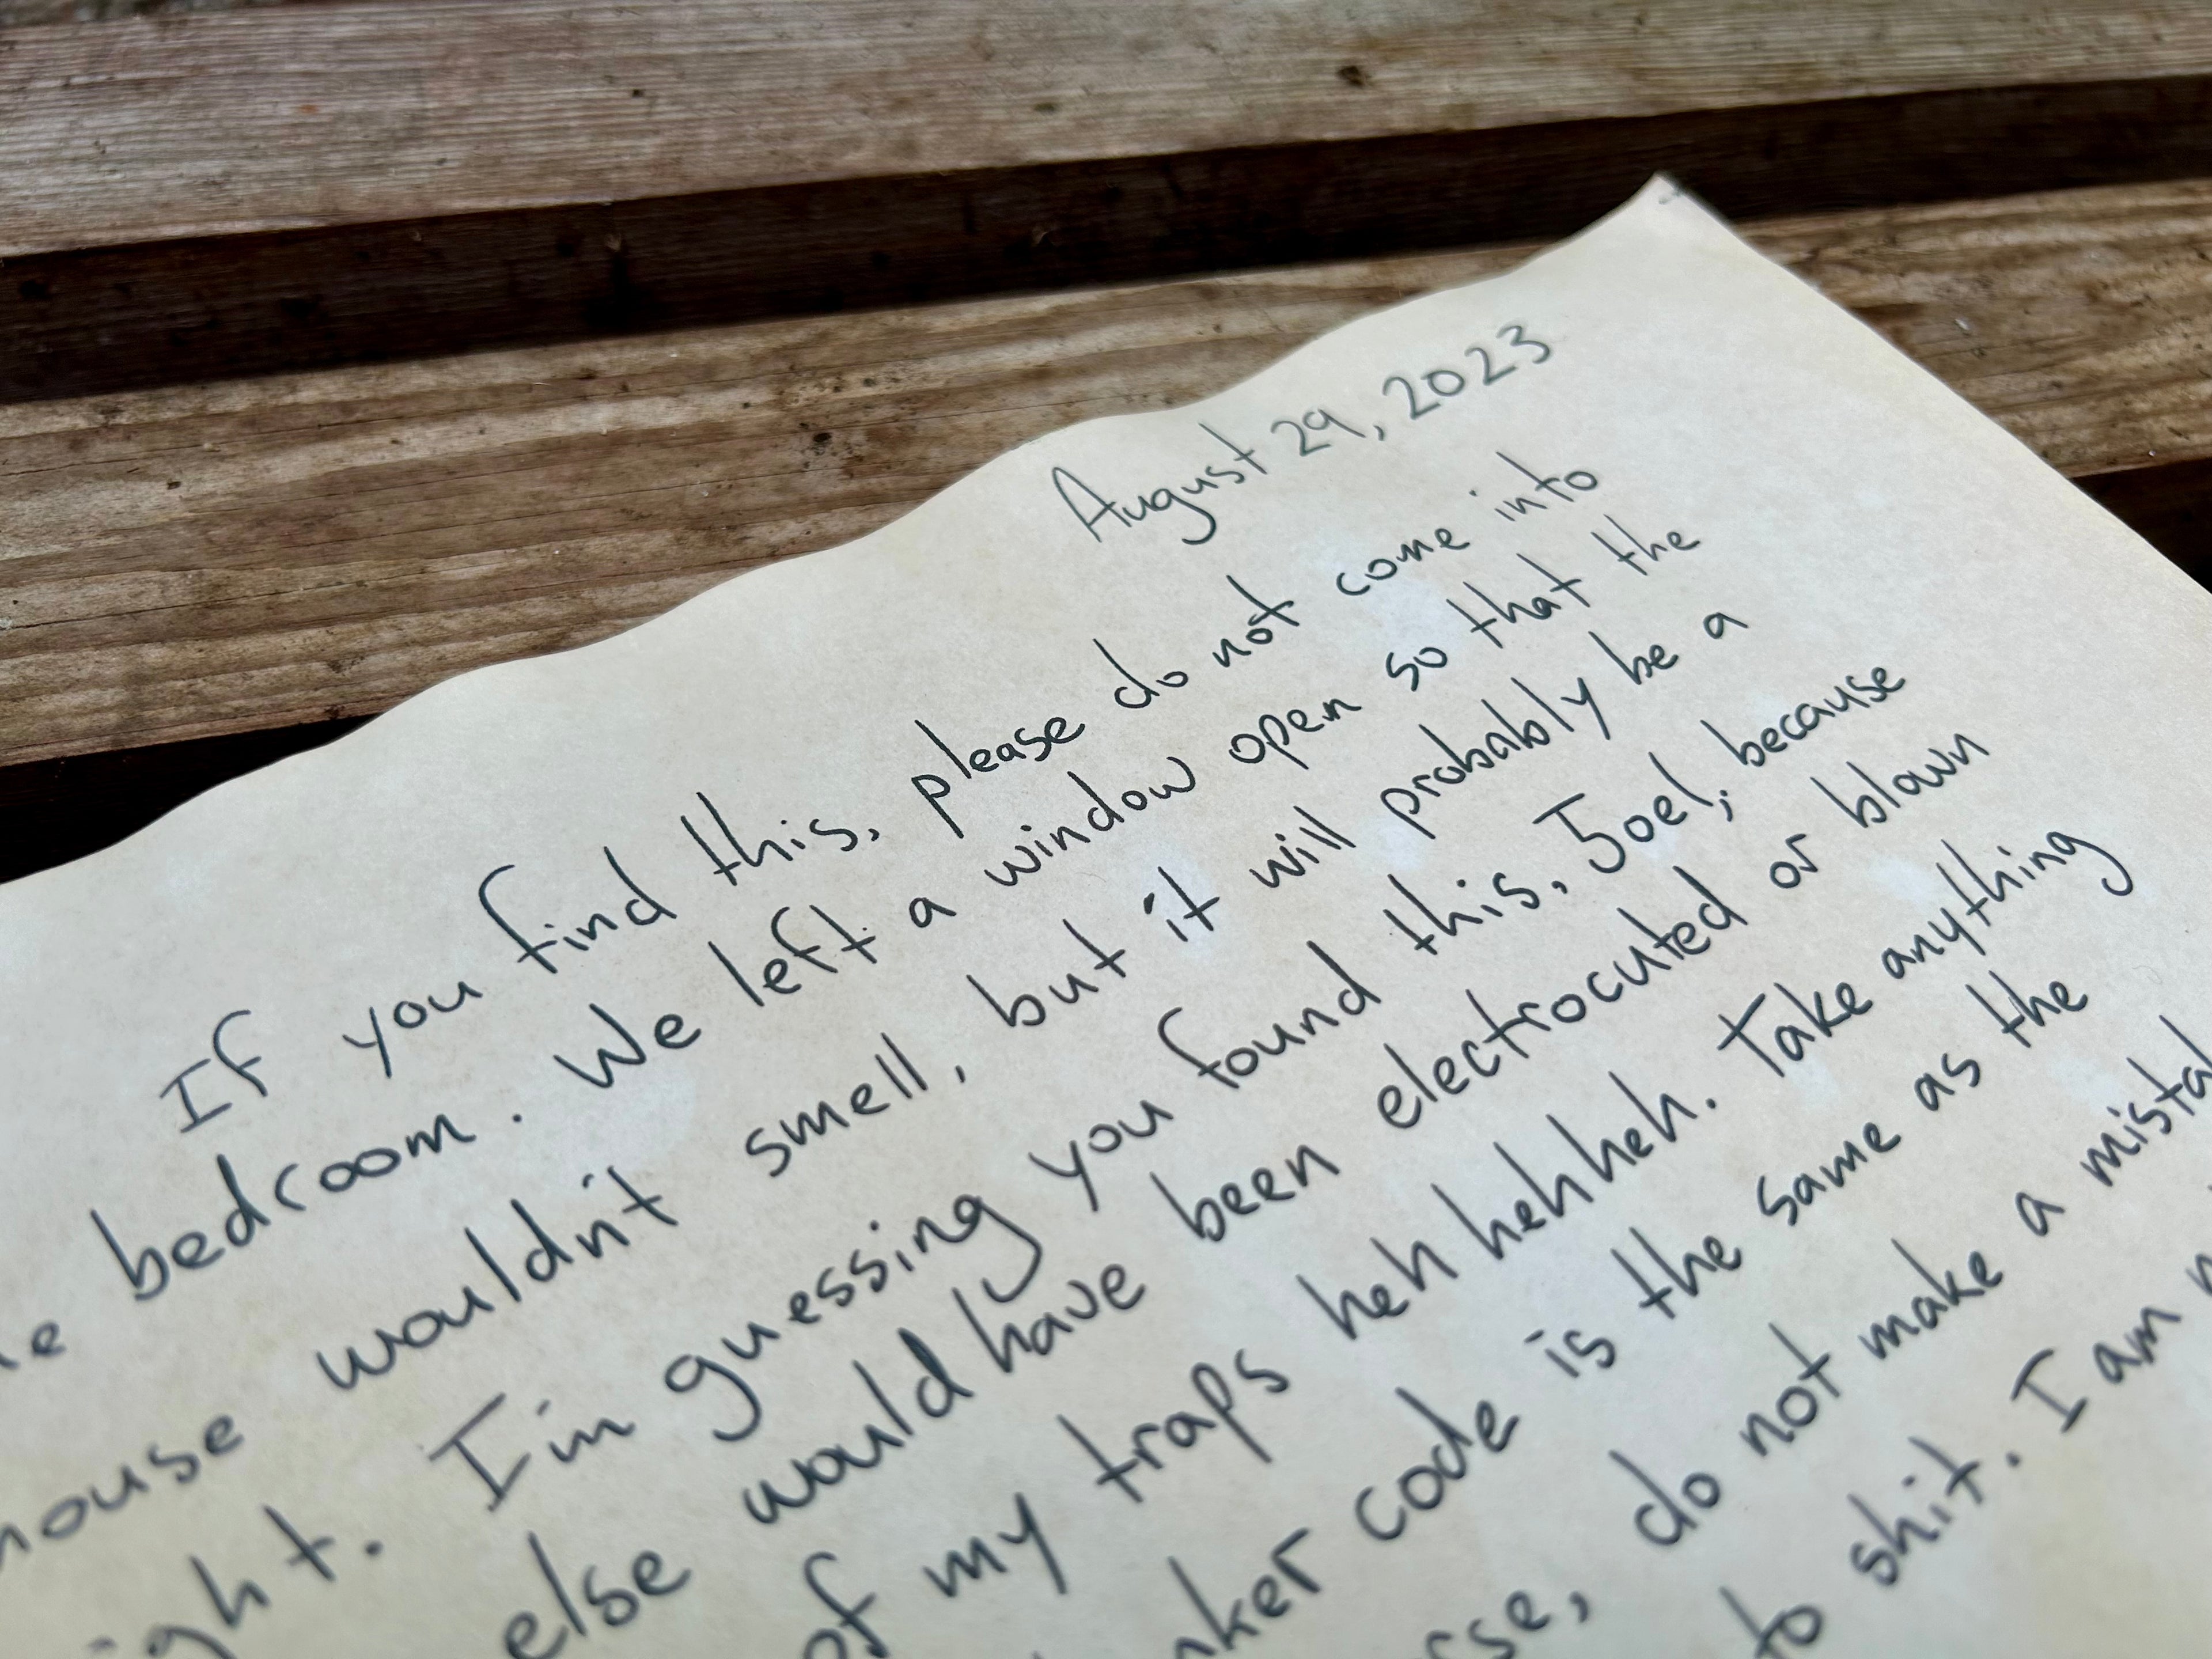 August 29, 2023
If you find this, please do not come into
bedroom. We left a window open so that the
house wouldn't smell, but it will probably be a
I'm guessing you found this, Joel, because
else would have been electrocuted or blown
of my traps heh hehheh. Take anything
code is the same as the
do not make a
to shit. I am